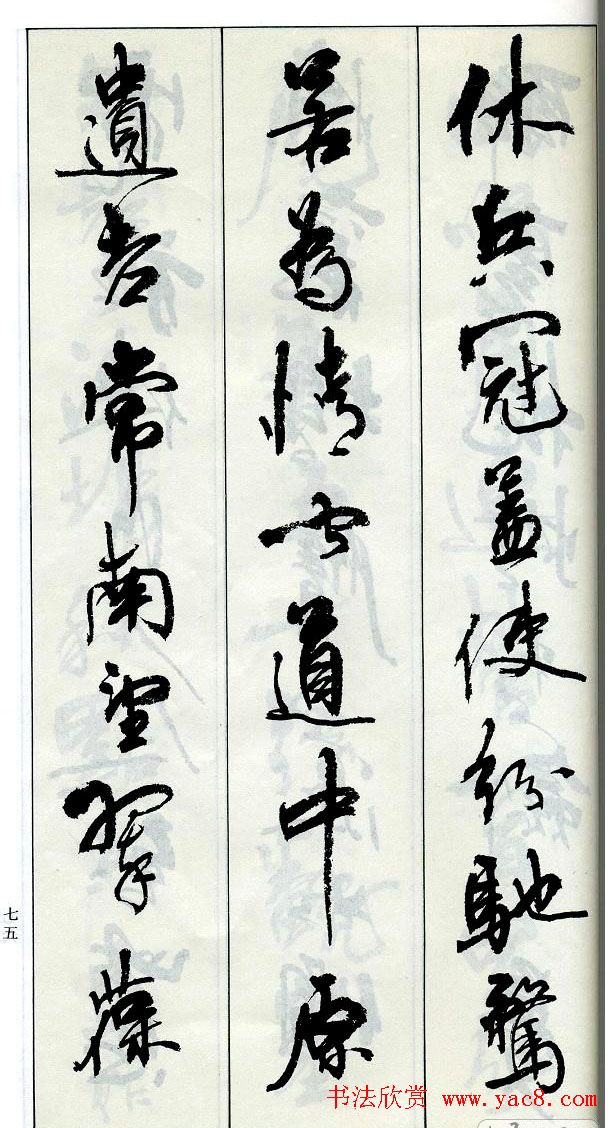 休兵冠盖使紛馳騖
若為情聞道中原
遺老常南望翠葆
七五
书法欣赏 www.yac8.com